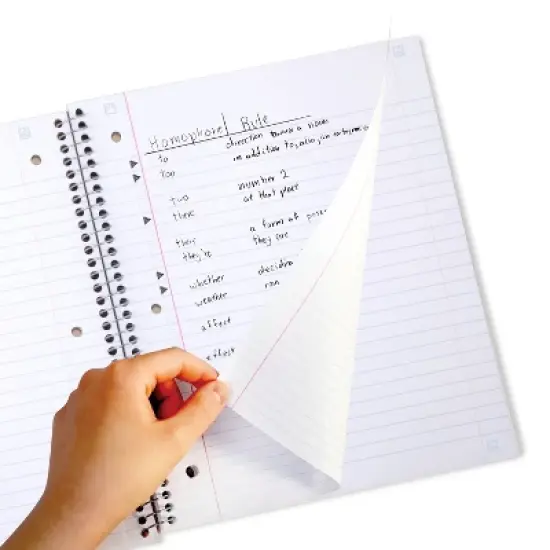 Homophone Rule
to direction toward a noun
too in addition to, also, in
two number 2
there at that place
their a form of
they're they are
whether
weather
affect
effect